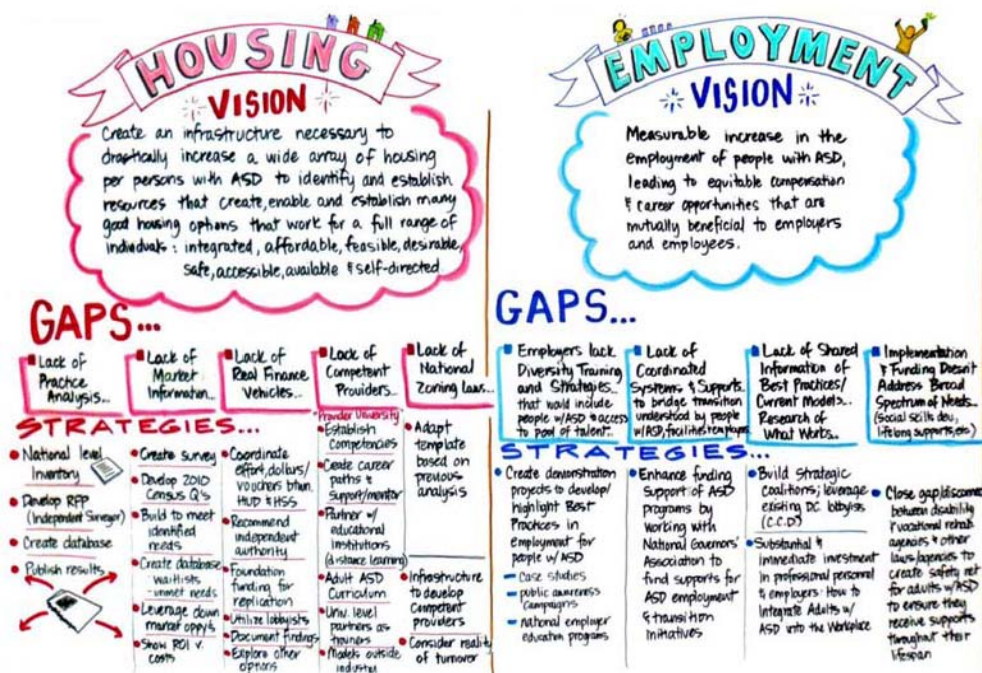 HOUSING
VISION
Create an infrastructure necessary to
drastically increase a wide array of housing
per persons with ASD to identify and establish
resources that create, enable and establish many
good housing options that work for a full range of
individuals: integrated, affordable, feasible, desirable,
safe, accessible, available & self-directed
GAPS...
Lack of
Practice
Analysis...
Lack of
Market
Information...
Lack of
Real Finance
Vehicles...
Lack of
Competent
Providers...
Lack of
National
Zoning Laws...
STRATEGIES...
National level
Inventory
Develop RFP
(Independent Surveyor)
Create database
Publish results
Create survey
Develop 2010
Census Q's
Build to meet
identified
needs
Create database
-waitlists
-unmet needs
Leverage down
market oppy's
Show ROI v.
costs
Coordinate
effort, dollars/
vouchers btwn.
HUD & HSS
Recommend
independent
authority
Foundation
funding for
replication
Utilize lobbyists
Document findings
Explore other
options
"Provider University"
Establish
competencies
Create career
paths &
support/mentor
Partner w/
educational
institutions
(distance learning)
Adult ASD
Curriculum
Univ. level
partners as
trainers
Models outside
industry
Adapt
template
based on
previous
analysis
Infrastructure
to develop
competent
providers
Consider reality
of turnover
EMPLOYMENT
VISION
Measurable increase in the
employment of people with ASD,
leading to equitable compensation
& career opportunities that are
mutually beneficial to employers
and employees.
GAPS...
Employers lack
Diversity Training
and Strategies...
that would include
people w/ASD & access
to pool of talent...
Lack of
Coordinated
Systems & Supports
to bridge transition
understood by people
w/ASD, facilities & employers
Lack of Shared
Information of
Best Practices/
Current Models...
Research of
What Works...
Implementation
& Funding Doesn't
Address Broad
Spectrum of Needs...
(social skills dev.,
lifelong supports, etc)
STRATEGIES...
Create demonstration
projects to develop/
highlight Best
Practices in
employment for
people w/ASD
- case studies
- public awareness
campaigns
- national employer
education programs
Enhance funding
support of ASD
programs by
working with
National Governors'
Association to
fund supports for
ASD employment
& transition
initiatives
Build strategic
coalitions; leverage
existing DC lobbyists
(C.C.D)
Substantial &
immediate investment
in professional personnel
& employers: How to
Integrate Adults w/
ASD into the Workplace
Close gap/disconnect
between disability
& vocational rehab
agencies & other
laws/agencies to
create safety net
for adults w/ASD
to ensure they
receive supports
throughout their
lifespan